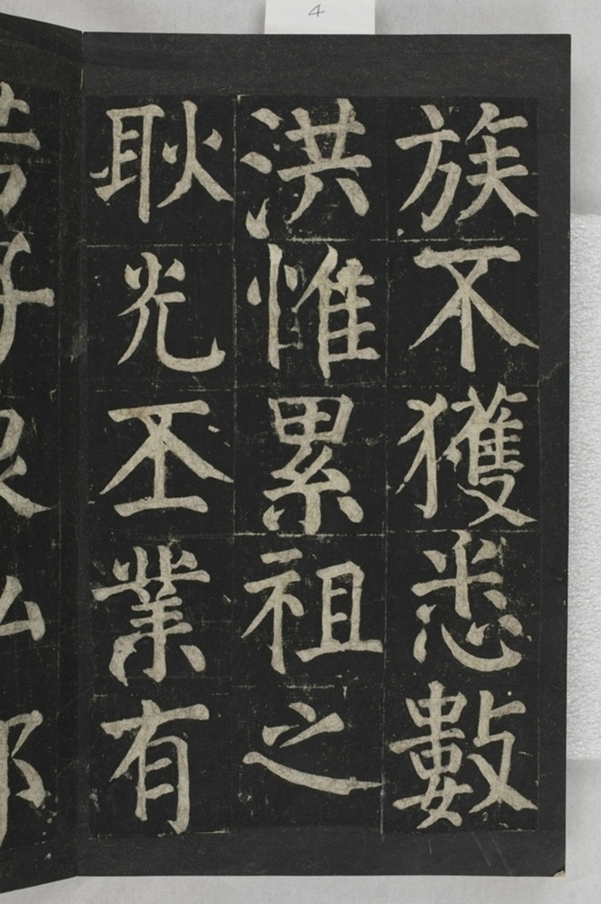 4
族不獲悉數
洪惟累祖之
耿光丕業有